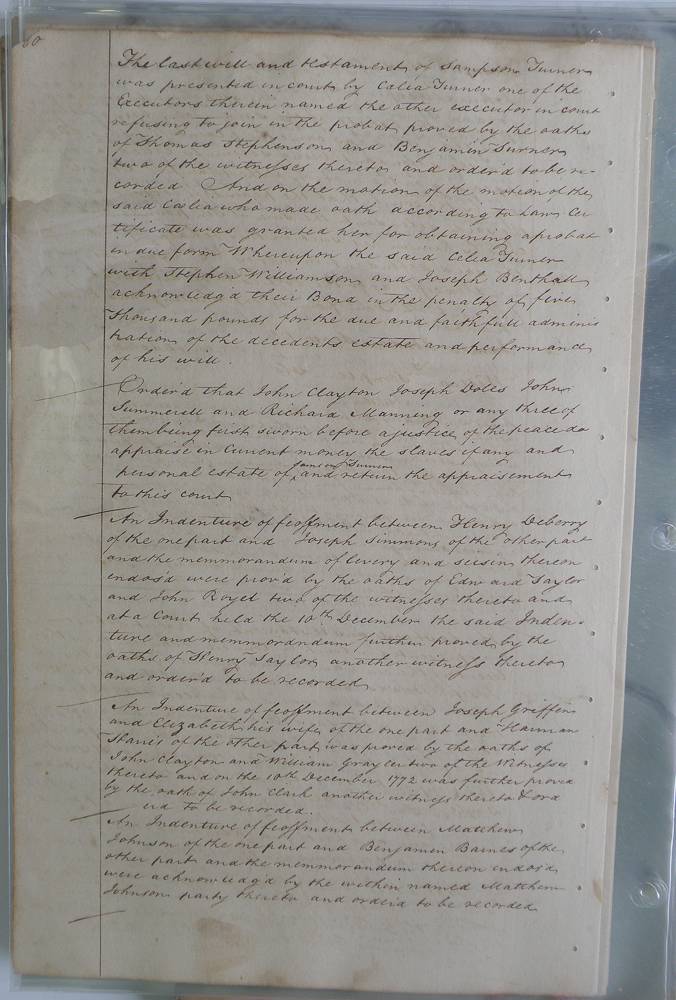 60
The last will and testament of Sampson Turner
was presented in court by Celia Turner one of the
Executors therein named the other executor in court
refusing to join in the probat proved by the oaths
of Thomas Stephenson and Benjamin Turner
two of the witnesses thereto and order'd to be re-
corded And on the motion of the motion of the
said Cælia who made oath according to Law Cer
tificate was granted her for obtaining a probat
in due form Whereupon the said Celia Turner
with Stephen Williamson and Joseph Benthall
acknowledg'd their Bond in the penalty of five
Thousand pounds for the due and faithfull adminis
tration of the decedents estate and performance
of his will.
Order'd that John Clayton Joseph Doles John
Summerell and Richard Manning or any three of
them being first sworn before a justice of the peace do
appraise in Current money the slaves if any and
personal estate of Sampson Turner and return the appraisement
to this court
An Indenture of feoffment between Henry Deberry
of the one part and Joseph Simmons of the other part
and the memmorandum of livery and seisin thereon
endos'd were prov'd by the oaths of Edward Taylor
and John Royel two of the witnesses thereto and
at a Court held the 10th December the said Inden-
ture and memmorandum further proved by the
oaths of Henry Taylor another witness thereto
and order'd to be recorded
An Indenture of feoffment between Joseph Griffin
and Elizabeth his wife of the one part and Harman
of the other part was proved by the oaths of
John Clayton and William Gray two of the Witnesses
thereto and on the 10th December 1772 was further proved
by the oath of John Clark another witness thereto & ord
er'd to be recorded.
An Indenture of feoffment between Matthew
Johnson of the one part and Benjamin Barnes of the
other part and the memmorandum thereon endos'd
were acknowledg'd by the within named Matthew
Johnson party thereto and order'd to be recorded